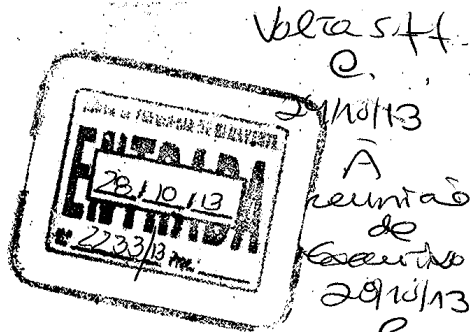 Volta s.f.f.
29/10/13
À
reunião
de
Executivo
29/10/13
JUNTA DE FREGUESIA DE
ENTRADA
28/10/13
Nº 2233/13 Proc.